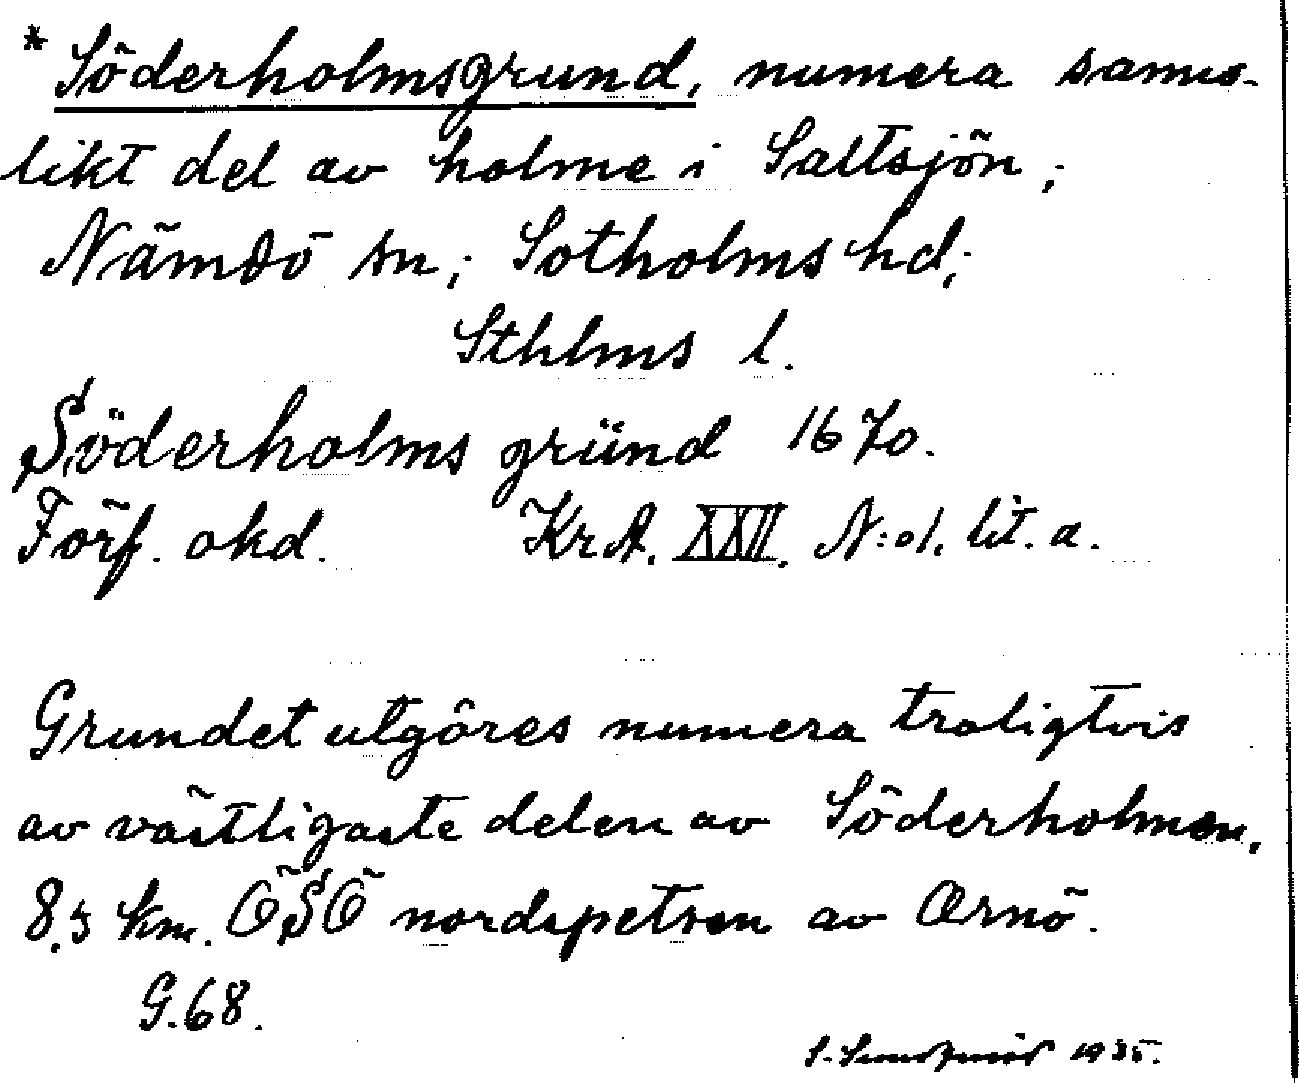 * Söderholmsgrund, numera sanno-
likt del av holme i Saltsjön;
Nämdö sn; Sotholms hd;
Sthlms l.
Söderholms gründ 1670.
Förf. okd. KrA. XXII. N:o1. lit. a.
Grundet utgöres numera troligtvis
av västligaste delen av Söderholmen,
8,5 km. ÖSÖ nordspetsen av Ornö.
G.68.
S. 1935.